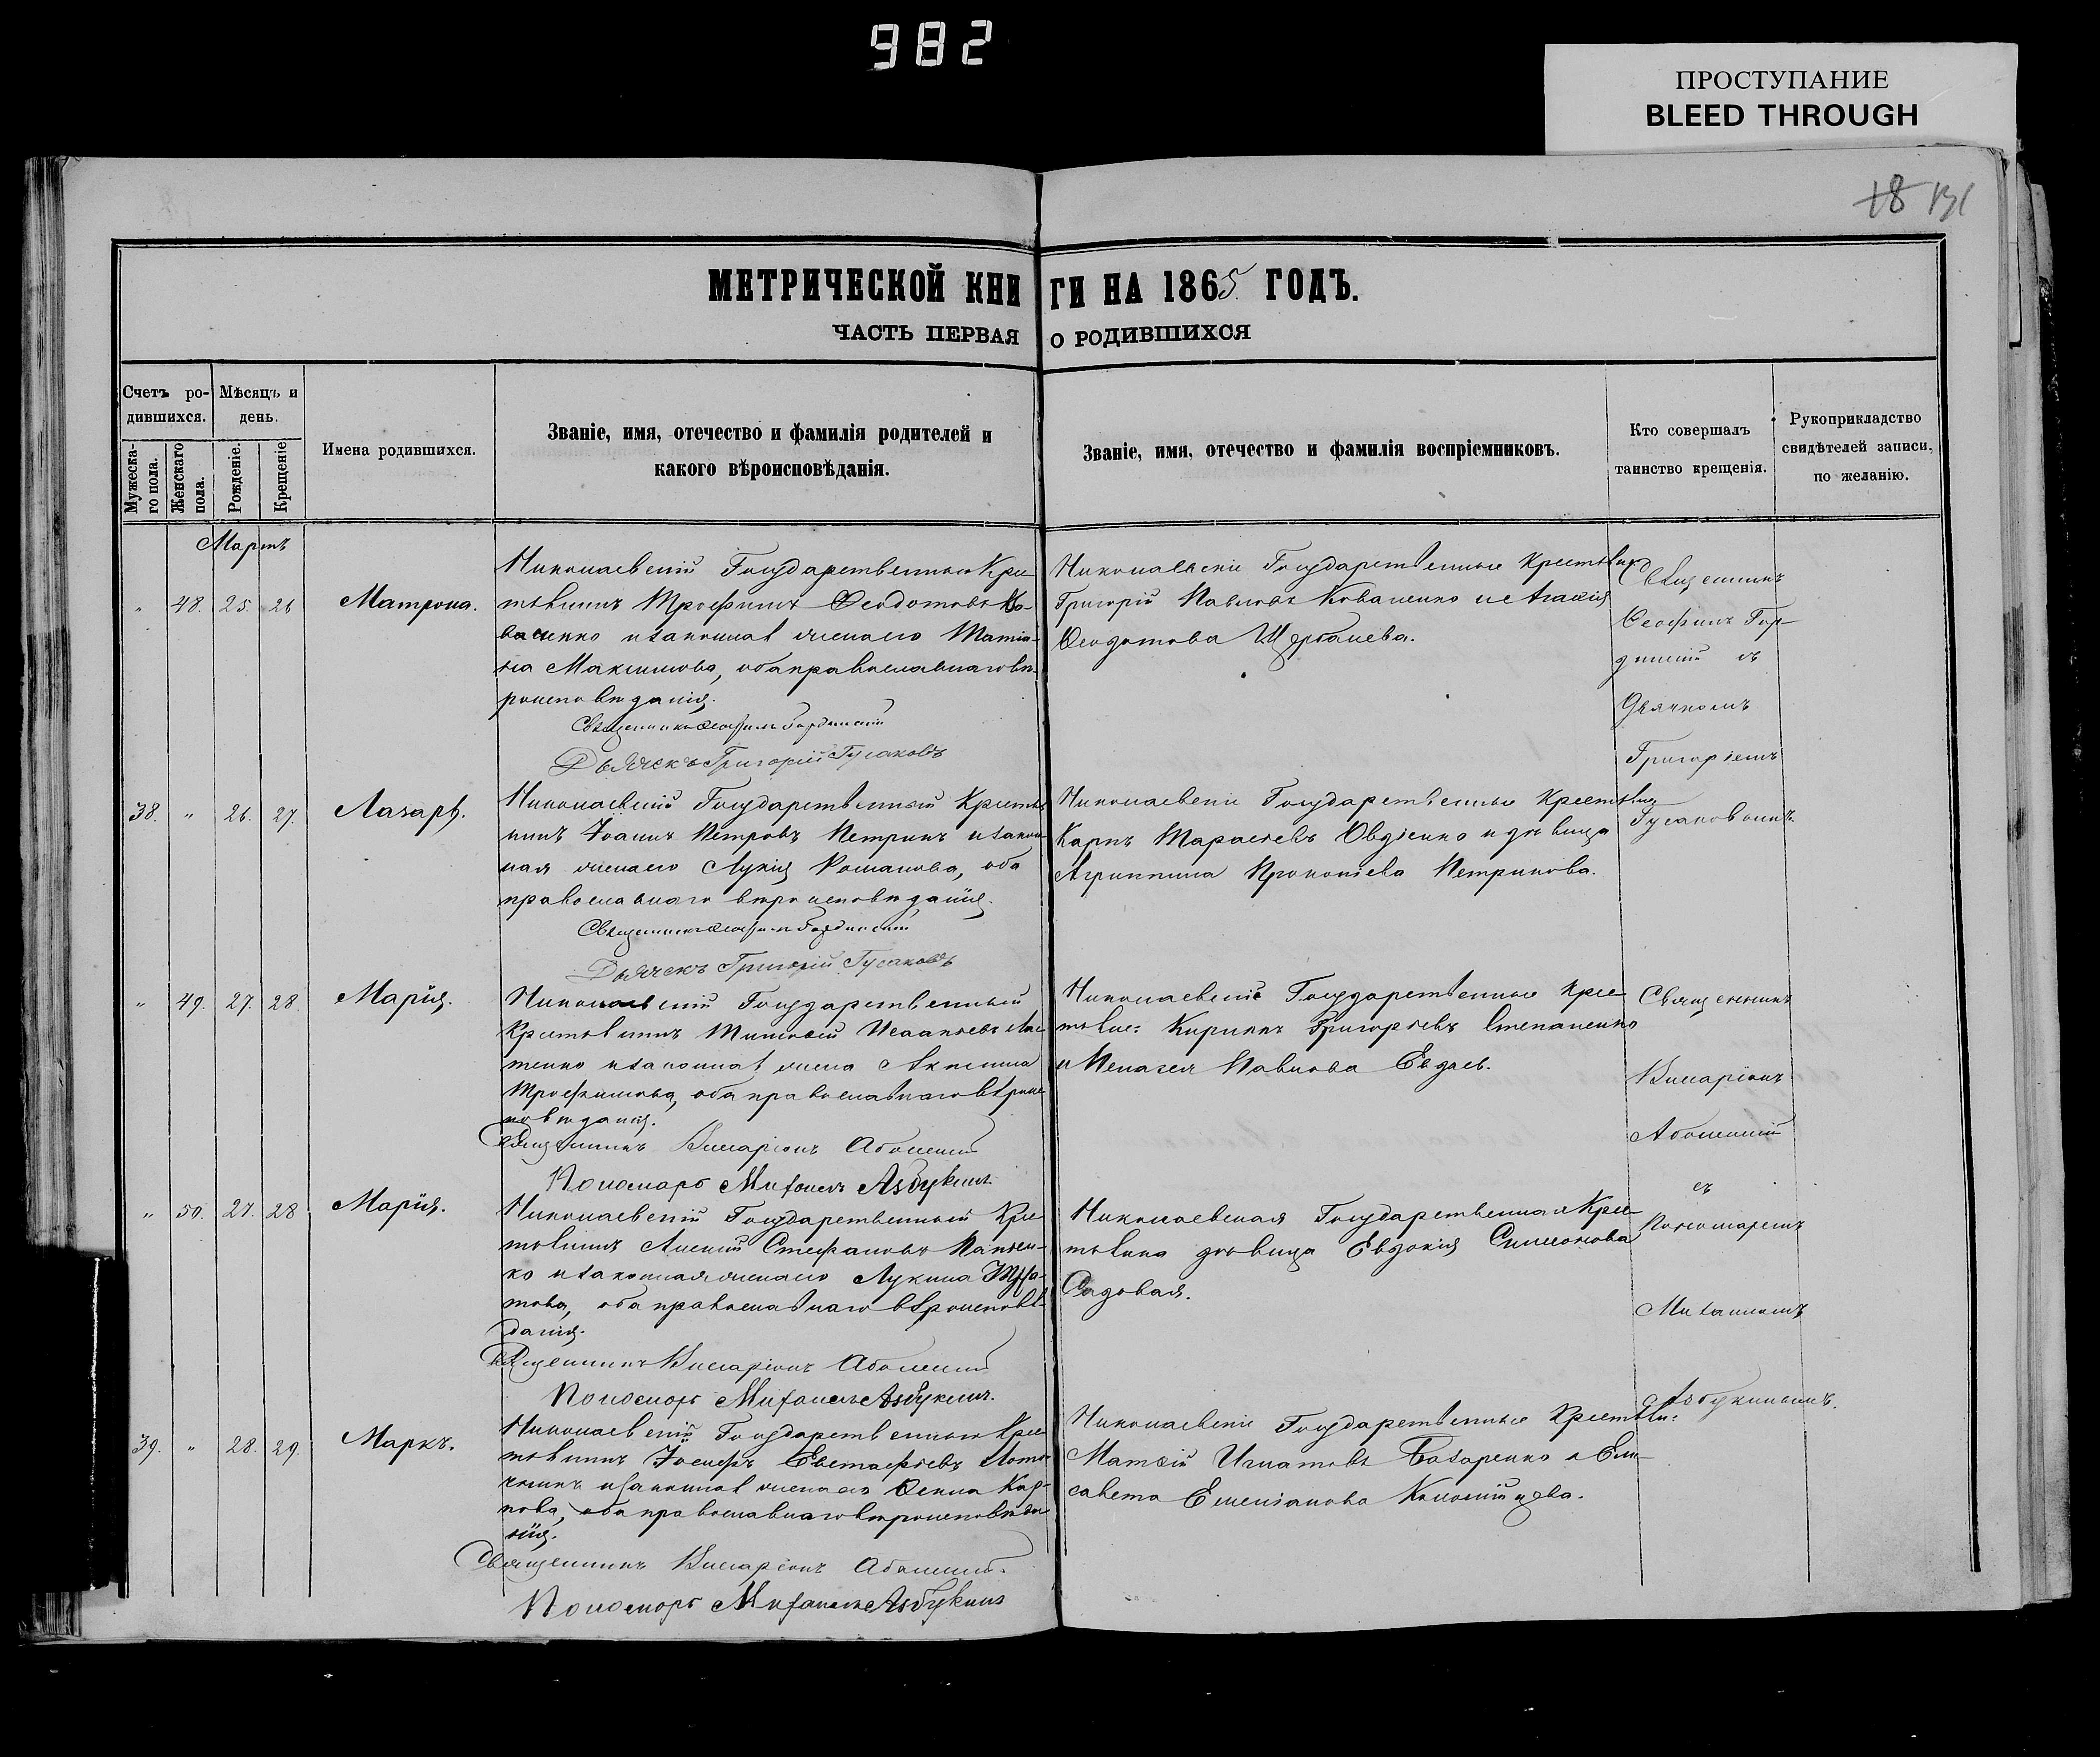 982
ПРОСТУПАНИЕ
BLEED THROUGH
18
МЕТРИЧЕСКОЙ КНИГИ НА 1865 ГОДЪ.
ЧАСТЬ ПЕРВАЯ О РОДИВШИХСЯ
Счетъ родившихся.
Мужескаго пола.
Женскаго пола.
Мѣсяцъ и день.
Рожденіе.
Крещеніе
Имена родившихся.
Званіе, имя, отечество и фамилія родителей и
какого вѣроисповѣданія.
Званіе, имя, отечество и фамилія воспріемниковъ.
Кто совершалъ
таинство крещенія.
Рукоприкладство
свидѣтелей записи,
по желанію.
Мартъ
" 48. 25. 26 Матрона.
Николаевскій Государственный Кре-
стьянинъ Трофимъ Феодотовъ Ко-
валенко и законная жена его Татіа-
на Максимова, оба православнаго вѣ-
роисповѣданія.
Священникъ Феофилъ Гординскій
Дьячекъ Григорій Гусаковъ
Николаевскіе Государственные Крестьяне
Григорій Павловъ Коваленко и Агафія
Феодотова Щербачева.
Священникъ
Феофилъ Гор-
динскій съ
Дьячкомъ
Григоріемъ
Гусаковымъ.
38. " 26. 27. Лазарь.
Николаевскій Государственный Крестья-
нинъ Іоаннъ Петровъ Петринъ и закон-
ная жена его Лукія Романова, оба
православнаго вѣроисповѣданія.
Священникъ Феофилъ Гординскій
Дьячекъ Григорій Гусаковъ
Николаевскіе Государственные Крестьяне
Карпъ Тарасіевъ Овдіенко и дѣвица
Агриппина Прокопіева Петринова.
" 49. 27. 28. Марія.
Николаевскій Государственный
Крестьянинъ Тимофей Исаакіевъ
тенко и законная жена Аксинія
Трофимова, оба православнаго вѣроис-
повѣданія.
Священникъ Виссаріонъ
Пономарь Михаилъ Азбукинъ
Николаевскіе Государственные Крес-
тьяне: Кириллъ Григоріевъ Степаненко
и Пелагея Павлова Евдась.
Священникъ
Виссаріонъ
съ
Пономаремъ
Михаиломъ
Азбукинымъ.
" 50. 27. 28 Марія.
Николаевскій Государственный Крес-
тьянинъ Алексій Стефановъ
ко и законная жена его Лукина
това, оба православнаго вѣроисповѣ-
данія.
Священникъ Виссаріонъ
Пономарь Михаилъ Азбукинъ.
Николаевская Государственная Крес-
тьянка дѣвица Евдокія Симеонова
Садовая.
39. " 28. 29. Маркъ.
Николаевскій Государственный Крес-
тьянинъ Іосифъ Евстафіевъ
и законная жена его Ксенія Кар-
пова, оба православнаго вѣроисповѣда-
нія.
Священникъ Виссаріонъ
Пономарь Михаилъ Азбукинъ
Николаевскіе Государственные Крестьяне:
Матфій Игнатовъ Базаренко и Ели-
савета Емеліанова